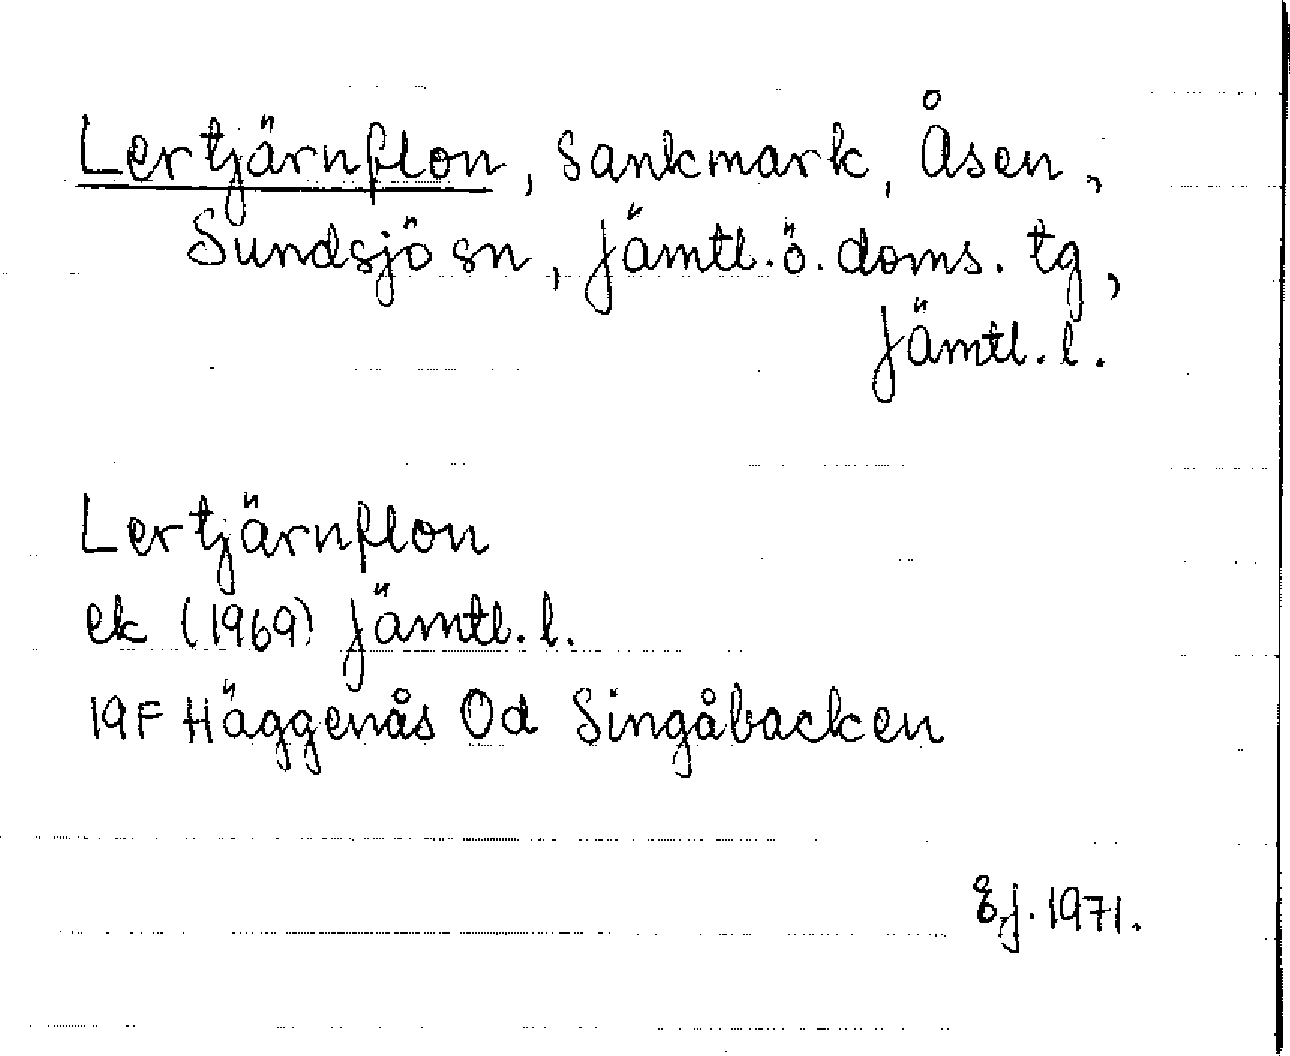 Lertjärnflon, Sankmark, Åsen,
Sundsjö sn, Jämtl.ö.doms.tg,
Jämtl.l.
Lertjärnflon
ek (1969) Jämtl.l.
19F Häggenås 0d Singåbacken
1971.